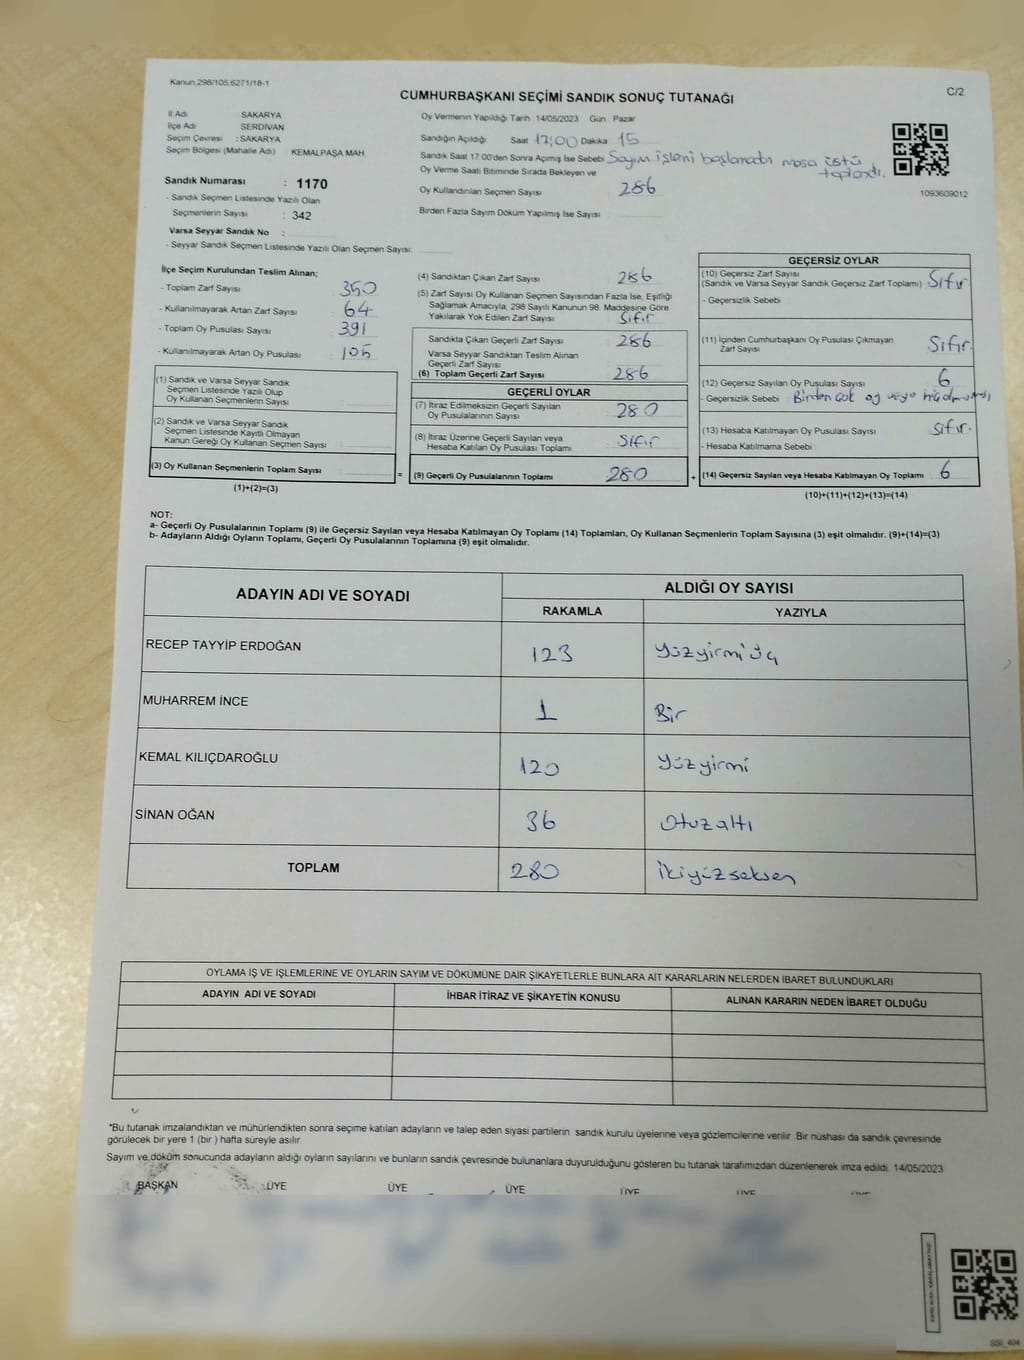 Kanun;298/105;6271/18-1
C/2
CUMHURBAŞKANI SEÇİMİ SANDIK SONUÇ TUTANAĞI
İl Adı SAKARYA
İlçe Adı SERDİVAN
Seçim Çevresi : SAKARYA
Seçim Bölgesi (Mahalle Adı) KEMALPAŞA MAH.
Sandık Numarası : 1170
- Sandık Seçmen Listesinde Yazılı Olan
Seçmenlerin Sayısı : 342
Varsa Seyyar Sandık No :
- Seyyar Sandık Seçmen Listesinde Yazılı Olan Seçmen Sayısı:
Oy Vermenin Yapıldığı Tarih :14/05/2023 Gün Pazar
Sandığın Açıldığı Saat 17:00 Dakika 15
Sandık Saat 17:00'den Sonra Açımış İse Sebebi Sayım işlemi başlamadı masa üstü
toplandı.
Oy Verme Saati Bitiminde Sırada Bekleyen ve
Oy Kullandırılan Seçmen Sayısı 286
Birden Fazla Sayım Döküm Yapılmış İse Sayısı :
1093609012
İlçe Seçim Kurulundan Teslim Alınan;
- Toplam Zarf Sayısı : 350
- Kullanılmayarak Artan Zarf Sayısı : 64
- Toplam Oy Pusulası Sayısı : 391
- Kullanılmayarak Artan Oy Pusulası : 105
(1) Sandık ve Varsa Seyyar Sandık
Seçmen Listesinde Yazılı Olup
Oy Kullanan Seçmenlerin Sayısı
(2) Sandık ve Varsa Seyyar Sandık
Seçmen Listesinde Kayıtlı Olmayan
Kanun Gereği Oy Kullanan Seçmen Sayısı :
(3) Oy Kullanan Seçmenlerin Toplam Sayısı
(1)+(2)=(3)
=
(4) Sandıktan Çıkan Zarf Sayısı 286
(5) Zarf Sayısı Oy Kullanan Seçmen Sayısından Fazla İse, Eşitliği
Sağlamak Amacıyla; 298 Sayılı Kanunun 98. Maddesine Göre
Yakılarak Yok Edilen Zarf Sayısı Sıfır
Sandıkta Çıkan Geçerli Zarf Sayısı : 286
Varsa Seyyar Sandıktan Teslim Alınan
Geçerli Zarf Sayısı
(6) Toplam Geçerli Zarf Sayısı : 286
GEÇERLİ OYLAR
(7) İtiraz Edilmeksizin Geçerli Sayılan
Oy Pusulalarının Sayısı : 280
(8) İtiraz Üzerine Geçerli Sayılan veya
Hesaba Katılan Oy Pusulası Toplamı : Sıfır
(9) Geçerli Oy Pusulalarının Toplamı : 280
+
GEÇERSİZ OYLAR
(10) Geçersiz Zarf Sayısı
(Sandık ve Varsa Seyyar Sandık Geçersiz Zarf Toplamı) Sıfır
- Geçersizlik Sebebi :
(11) İçinden Cumhurbaşkanı Oy Pusulası Çıkmayan
Zarf Sayısı Sıfır.
(12) Geçersiz Sayılan Oy Pusulası Sayısı : 6
- Geçersizlik Sebebi : Birden çok oy veya hiç olmaması
(13) Hesaba Katılmayan Oy Pusulası Sayısı : Sıfır.
- Hesaba Katılmama Sebebi
(14) Geçersiz Sayılan veya Hesaba Katılmayan Oy Toplamı : 6
(10)+(11)+(12)+(13)=(14)
NOT:
a- Geçerli Oy Pusulalarının Toplamı (9) ile Geçersiz Sayılan veya Hesaba Katılmayan Oy Toplamı (14) Toplamları, Oy Kullanan Seçmenlerin Toplam Sayısına (3) eşit olmalıdır. (9)+(14)=(3)
b- Adayların Aldığı Oyların Toplamı, Geçerli Oy Pusulalarının Toplamına (9) eşit olmalıdır.
ADAYIN ADI VE SOYADI
ALDIĞI OY SAYISI
RAKAMLA YAZIYLA
RECEP TAYYİP ERDOĞAN 123 Yüzyirmi üç
MUHARREM İNCE 1 Bir
KEMAL KILIÇDAROĞLU 120 Yüzyirmi
SİNAN OĞAN 36 Otuzaltı
TOPLAM 280 İkiyüzseksen
OYLAMA İŞ VE İŞLEMLERİNE VE OYLARIN SAYIM VE DÖKÜMÜNE DAİR ŞİKAYETLERLE BUNLARA AİT KARARLARIN NELERDEN İBARET BULUNDUKLARI
ADAYIN ADI VE SOYADI İHBAR İTİRAZ VE ŞİKAYETİN KONUSU ALINAN KARARIN NEDEN İBARET OLDUĞU
*Bu tutanak imzalandıktan ve mühürlendikten sonra seçime katılan adayların ve talep eden siyasi partilerin sandık kurulu üyelerine veya gözlemcilerine verilir. Bir nüshası da sandık çevresinde
görülecek bir yere 1 (bir ) hafta süreyle asılır.
Sayım ve döküm sonucunda adayların aldığı oyların sayılarını ve bunların sandık çevresinde bulunanlara duyurulduğunu gösteren bu tutanak tarafımızdan düzenlenerek imza edildi. 14/05/2023
BAŞKAN ÜYE ÜYE ÜYE ÜYE ÜYE